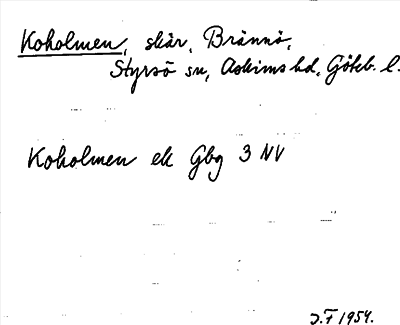 Koholmen, skär, Brännö,
Styrsö sn, Askims hd, Göteb. l.
Koholmen ek Gbg 3 NV
J.F 1954.